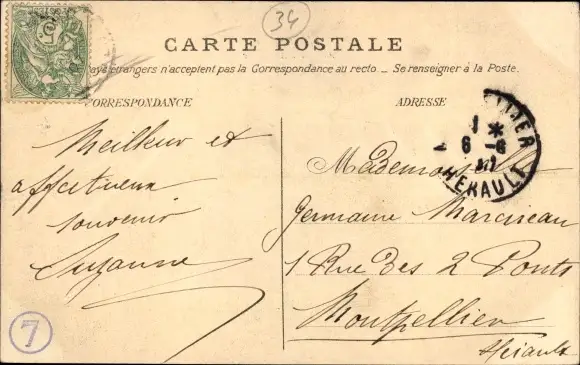 34
CARTE POSTALE
pays étrangers n'acceptent pas la Correspondance au recto _ Se renseigner à la Poste.
CORRESPONDANCE
ADRESSE
Meilleur et
affectueux
souvenir
Suzanne
HERAULT
1 *
6 - 6
Mademoiselle
Germaine
1 Rue Des 2 Ponts
Montpellier
Hérault
7